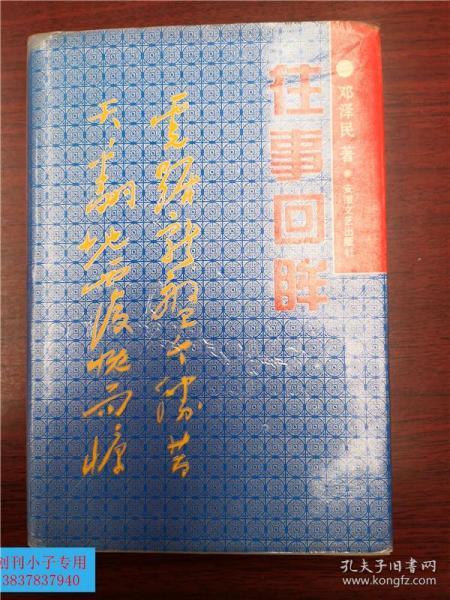 往事回眸
邓泽民 著
虎踞龙盘今胜昔
天翻地覆慨而慷
创刊小子专用
3837837940
孔夫子旧书网
www.kongfz.com